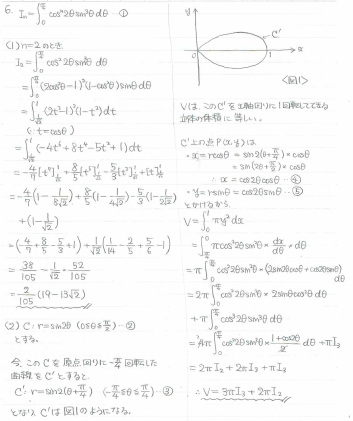 6. Iₙ = ∫₀^{π/4} cosⁿ2θ sin³θ dθ ①
(1) n=2 のとき
I₂ = ∫₀^{π/4} cos²2θ sin³θ dθ
= ∫₀^{π/4} (2cos²θ-1)²(1-cos²θ) sinθ dθ
= ∫_{1/√2}^{1} (2t²-1)²(1-t²) dt
(∵ t=cosθ)
= ∫_{1/√2}^{1} (-4t⁶+8t⁴-5t²+1) dt
= -4/7 [t⁷]_{1/√2}^{1} + 8/5 [t⁵]_{1/√2}^{1} - 5/3 [t³]_{1/√2}^{1} + [t]_{1/√2}^{1}
= -4/7 (1 - 1/(8√2)) + 8/5 (1 - 1/(4√2)) - 5/3 (1 - 1/(2√2))
+ (1 - 1/√2)
= (-4/7 + 8/5 - 5/3 + 1) + 1/√2 (1/14 - 2/5 + 5/6 - 1)
= 38/105 - 1/√2 × 52/105
= 2/105 (19 - 13√2)
(2) C : r = sin2θ (0≦θ≦π/2) …②
とする。
今、この C を原点回りに -π/4 回転した
曲線を C' とすると、
C' : r = sin2(θ+π/4) (-π/4≦θ≦π/4) …③
となり、C' は図1のようになる。
y
C'
0
1
x
<図1>
Vは、この C' を x軸回りに1回転してできる
立体の体積に等しい。
C' 上の点 P(x, y) は
・x = r cosθ = sin2(θ+π/4) × cosθ
= sin(2θ+π/2) × cosθ
∴ x = cos2θ cosθ …④
・y = r sinθ = cos2θ sinθ …⑤
とかけるから、
V = ∫₀¹ πy² dx
= ∫_{π/4}^{0} π cos²2θ sin²θ × dx/dθ × dθ
= π ∫₀^{π/4} cos²2θ sin²θ × (2sin2θ cosθ + cos2θ sinθ) dθ
= 2π ∫₀^{π/4} cos²2θ sin²θ × 2sinθ cos²θ dθ
+ π ∫₀^{π/4} cos³2θ sin³θ dθ
= 4π ∫₀^{π/4} cos²2θ sin³θ × (1+cos2θ)/2 dθ + πI₃
= 2πI₂ + 2πI₃ + πI₃
∴ V = 3πI₃ + 2πI₂